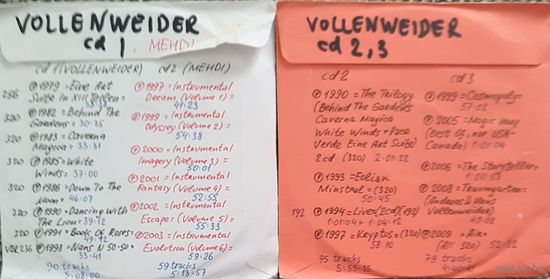 VOLLENWEIDER
cd 1, MEHDI
cd 1 (VOLLENWEIDER)
256 ℗ 1979 = Eine Art
Suite In XIII Teilen =
38:
320 ℗ 1982 = Behind The
Gardens = 30:35
320 ℗ 1983 = Caverna
Magica = 33:31
320 ℗ 1985 = White
Winds = 37:00
320 ℗ 1986 = Down To The
Moon = 46:07
320 ℗ 1990 = Dancing With
The Lion = 39:12
320 ℗ 1991 = Book Of Roses =
49:12
VBR 236 ℗ 1998 =
90 tracks
5:08:00
cd 2 (MEHDI)
℗ 1997 = Instrumental
Dream (Volume 1) =
41:23
℗ 1999 = Instrumental
Odyssey (Volume 2) =
54:38
℗ 2000 = Instrumental
Imagery (Volume 3) =
50:01
℗ 2001 = Instrumental
Fantasy (Volume 4) =
52:55
℗ 2002 = Instrumental
Escape = (Volume 5) =
55:33
℗ 2003 = Instrumental
Evolution (Volume 6) =
59:26
59 tracks
5:13:57
VOLLENWEIDER
cd 2, 3
cd 2
℗ 1990 = The Trilogy
(Behind The Gardens
Caverna Magica
White Winds + Pace
Verde Eine Art Suite)
2 cd (320) 2:01:22
℗ 1993 = Eolian
Minstrel = (320)
50:45
192 ℗ 1994 = Live = (2cd) (192)
1:01:04 + 1:04:12
℗ 1997 = Kryptos = (320)
58:10
95 tracks
5:55:35
cd 3
℗ 1999 = Cosmopoly =
57:02
℗ 2005 = Magic Harp
(Best Of, for USA-
Canada) 1:01:04
℗ 2006 = The Storyteller =
1:00:55
℗ 2008 = Traumgarten =
(Andreas & Hans
Vollenweider)
49:28
℗ 2009 = Air =
(All 320) 52:32
79 tracks